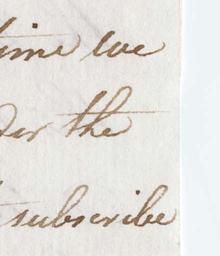 time we
the
subscribe